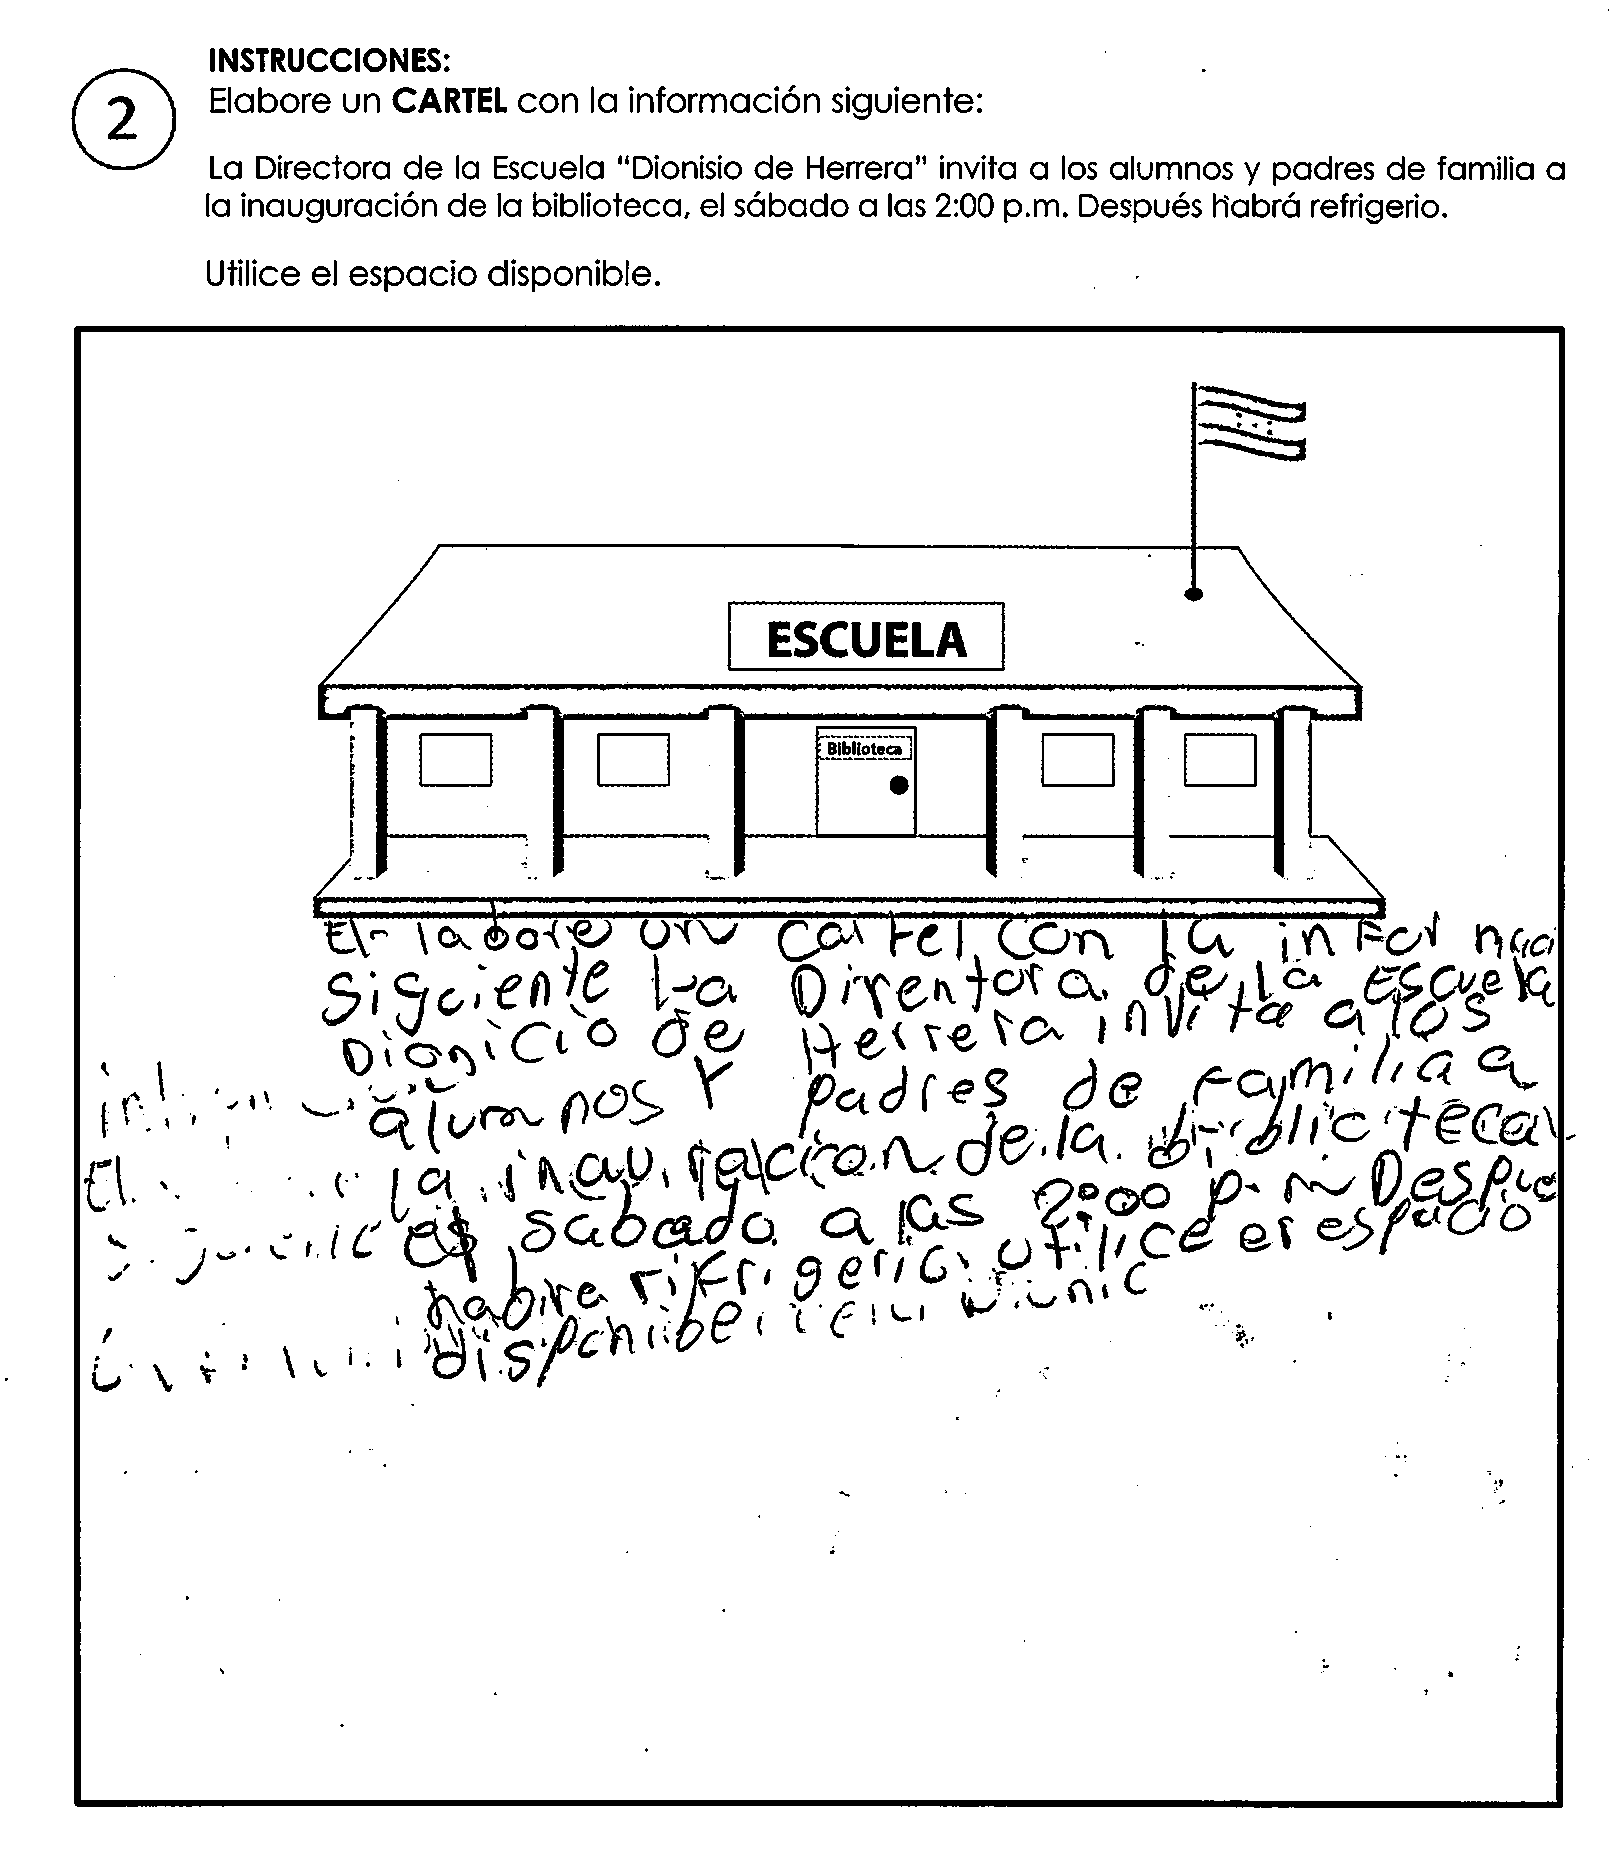 INSTRUCCIONES:
2
Elabore un CARTEL con la información siguiente:
La Directora de la Escuela "Dionisio de Herrera" invita a los alumnos y padres de familia a
la inauguración de la biblioteca, el sábado a las 2:00 p.m. Después habrá refrigerio.
Utilice el espacio disponible.
ESCUELA
Biblioteca
El-labore un cartel con la infor
Sigciente La Direntora de la Escuela
Dionicio de Herrera invita a los
alumnos Y padres de familia a
la de la
es sabado a las 2:00 p.m Despue
habira rifrigerio utilice er espacio